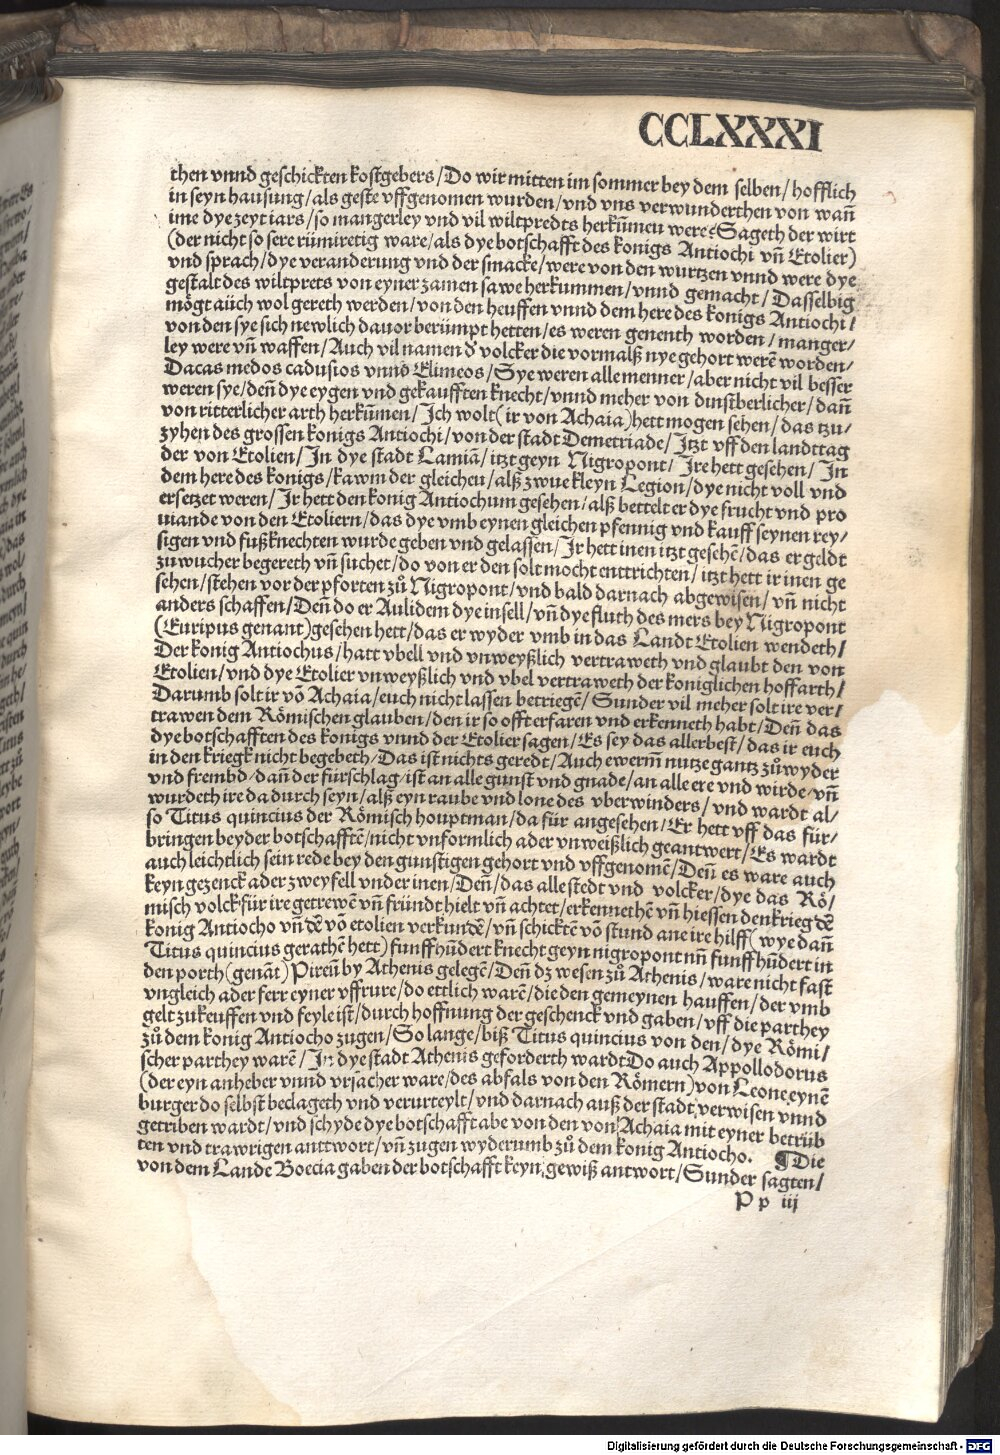 CCLXXXI
then vnnd geschickten kostgebers/Do wir mitten im sommer bey dem selben/hofflich
in seyn hausung/als geste vffgenomen wurden/vnd vns verwunderthen von wañ
ime dye zeyt iars/so mangerley vnd vil wiltpredts herkũmen were/Sageth der wirt
(der nicht so sere rümiretig ware/als dye botschafft des konigs Antiochi vñ Etolier)
vnd sprach/dye veranderung vnd der smacke/were von den wurtzen vnnd were dye
gestalt des wiltprets von eyner zamen sawe herkummen/vnnd gemacht/Dasselbig
mögt aüch wol gereth werden/von den heuffen vnnd dem here des konigs Antiochi/
von den sye sich newlich dauor berümpt hetten/es weren genenth worden/manger/
ley were vñ waffen/Auch vil namen d' volcker die vormalß nye gehort werē worden/
Dacas medos cadusios vnnd Elimeos/Sye weren alle menner/aber nicht vil besser
weren sye/deñ dye eygen vnd gekaufften knecht/vnnd meher von dinstberlicher/dañ
von ritterlicher arth herkũmen/Ich wolt(ir von Achaia)hett mogen sehen/das tzu/
zyhen des grossen konigs Antiochi/von der stadt Demetriade/Itzt vff den landttag
der von Etolien/In dye stadt Lamiā/itzt geyn Nigropont/Ire hett gesehen/In
dem here des konigs/kawm der gleichen/alß zwue kleyn Legion/dye nicht voll vnd
ersetzet weren/Ir hett den konig Antiochum gesehen/alß bettelt er dye frucht vnd pro
uiande von den Etoliern/das dye vmb eynen gleichen pfennig vnd kauff seynen rey/
sigen vnd fußknechten wurde geben vnd gelassen/Ir hett inen itzt gesehē/das er geldt
zu wucher begereth vñ suchet/do von er den solt mocht enttrichten/itzt hett ir inen ge
sehen/stehen vor der pforten zů Nigropont/vnd bald darnach abgewisen/vñ nicht
anders schaffen/Deñ do er Aulidem dye insell/vñ dye fluth des mers bey Nigropont
(Euripus genant)gesehen hett/das er wyder vmb in das Landt Etolien wendeth/
Der konig Antiochus/hatt vbell vnd vnweyßlich vertraweth vnd glaubt den von
Etolien/vnd dye Etolier vnweyßlich vnd vbel vertraweth der koniglichen hoffarth/
Darumb solt ir vō Achaia/euch nicht lassen betriegē/Sunder vil meher solt ire ver/
trawen dem Römischen glauben/den ir so offt erfaren vnd erkenneth habt/Deñ das
dye botschafften des konigs vnnd der Etolier sagen/Es sey das allerbest/das ir euch
in den kriegk nicht begebeth/Das ist nichts geredt/Auch ewerm nutze gantz zů wyder
vnd frembd/dañ der fürschlag/ist an alle gunst vnd gnade/an alle ere vnd wirde/vñ
wurdeth ire da durch seyn/alß eyn raube vnd lone des vberwinders/vnd wardt al/
so Titus quincius der Römisch houptman/da für angesehen/Er hett vff das für/
bringen beyder botschafftē/nicht vnformlich ader vnweißlich geantwert/Es wardt
auch leichtlich sein rede bey den gunstigen gehort vnd vffgenomē/Deñ es ware auch
keyn gezenck ader zweyfell vnder inen/Deñ/das alle stedt vnd volcker/dye das Rö/
misch volck für ire getrewē vñ fründt hielt vñ achtet/erkennethē vñ hiessen den krieg dē
konig Antiocho vñ dē vō etolien verkundē/vñ schicktē vō stund an e ire hilff(wye dañ
Titus quincius gerathē hett)funffhũdert knecht geyn nigropont vñ funffhũdert in
den porth(genāt)Pireũ by Athenis gelegē/Deñ dz wesen zů Athenis/ware nicht fast
vngleich ader ferr eyner vffrure/do ettlich warē/die den gemeynen hauffen/der vmb
gelt zukeuffen vnd feyle ist/durch hoffnung der geschenck vnd gaben/vff die parthey
zů dem konig Antiocho zugen/So lange/biß Titus quincius von den/dye Römi/
scher parthey warē/In dye stadt Athenis geforderth wardt Do auch Appollodorus
(der eyn anheber vnnd vrsacher ware/des abfals von den Römern)von Leone eynē
burger do selbst beclageth vnd verurteylt/vnd darnach auß der stadt verwisen vnnd
getriben wardt/vnd schyde dye botschafft abe von den von Achaia mit eyner betrüb
ten vnd trawrigen anttwort/vñ zugen wyderumb zů dem konig Antiocho. ¶Die
von dem Lande Boecia gaben der botschafft keyn gewiß antwort/Sunder sagten/
P p iij
Digitalisierung gefördert durch die Deutsche Forschungsgemeinschaft - DFG